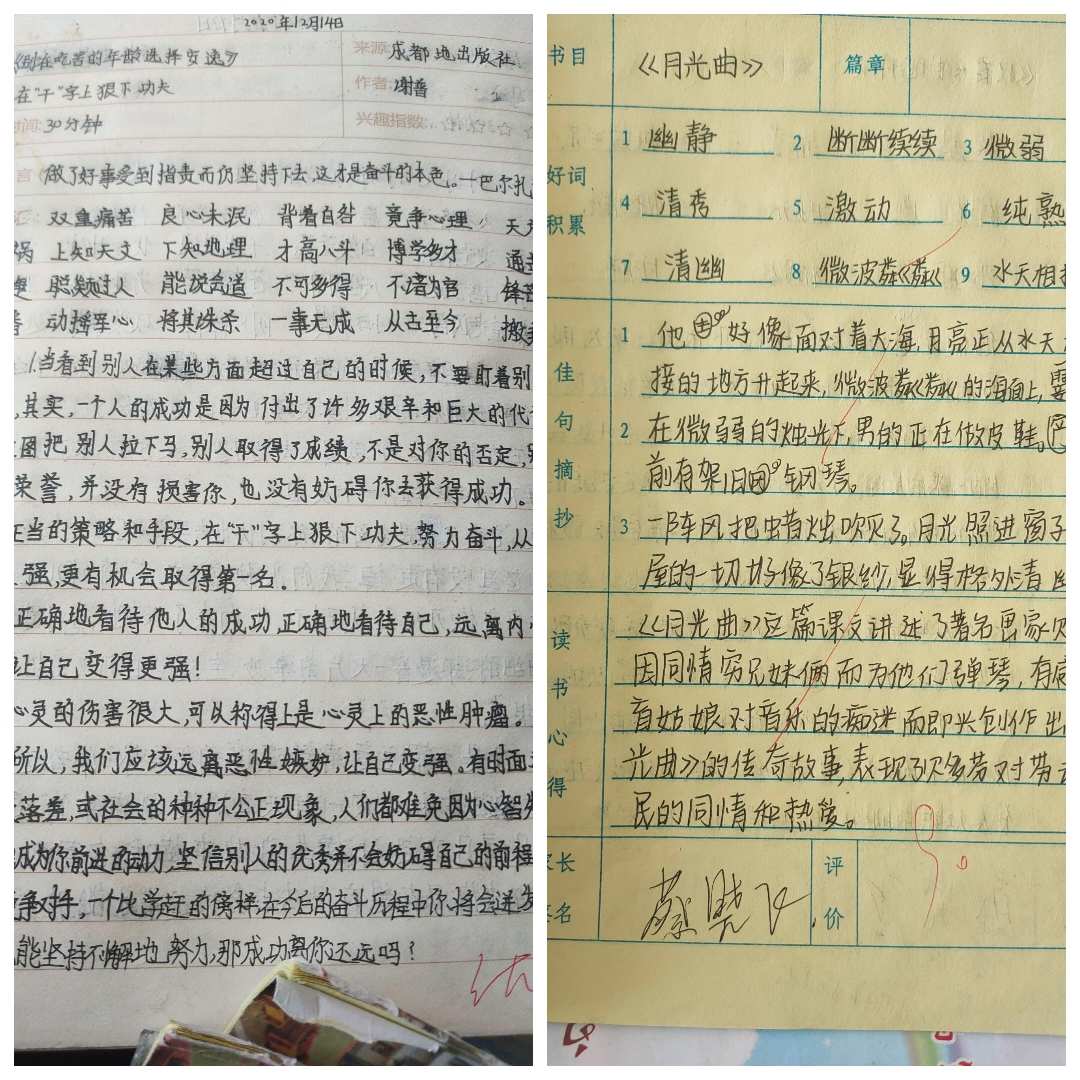 2020年12月14日
《别在吃苦的年龄选择安逸》
来源: 成都地出版社
在“干”字上狠下功夫
作者: 谢普
时间: 30分钟
兴趣指数:
做了好事受到指责而仍坚持下去,这才是奋斗的本色。—巴尔扎
双重痛苦 良心未泯 背着自咎 竞争心理 天
祸 上知天文 下知地理 才高八斗 博学多才 通
聪颖过人 能说会道 不可多得 不啻为官 锋芒
动摇军心 将其诛杀 一事无成 从古至今 搬
1.当看到别人在某些方面超过自己的时候,不要盯着别
,其实,一个人的成功是因为付出了许多艰辛和巨大的代
图把别人拉下马,别人取得了成绩,不是对你的否定,
荣誉,并没有损害你,也没有妨碍你去获得成功。
正当的策略和手段,在“干”字上狠下功夫,努力奋斗,从
强,更有机会取得第一名.
正确地看待他人的成功,正确地看待自己,远离内
让自己变得更强!
心灵的伤害很大,可以称得上是心灵上的恶性肿瘤。
所以,我们应该远离恶性嫉妒,让自己变强。有时面
落差,或社会的种种不公正现象,人们都难免因为心智
成为你前进的动力,坚信别人的优秀并不会妨碍自己的前程
争对手,一个比学赶的榜样,在今后的奋斗历程中你将会迸发
能坚持不懈地努力,那成功离你还远吗?
优
书目 《月光曲》 篇章
好词积累
1 幽静 2 断断续续 3 微弱
4 清秀 5 激动 6 纯熟
7 清幽 8 微波粼粼 9 水天相
佳句摘抄
1 他好像面对着大海,月亮正从水天
接的地方升起来,微波粼粼的海面上,霎
2 在微弱的烛光下,男的正在做皮鞋。
前有架旧钢琴。
3 一阵风把蜡烛吹灭了。月光照进窗子
屋的一切好像了银纱,显得格外清幽
读书心得
《月光曲》这篇课文讲述了著名画家贝
因同情穷兄妹俩而为他们弹琴,有感
盲姑娘对音乐的痴迷而即兴创作出
光曲》的传奇故事,表现了贝多芬对劳动
民的同情和热爱。
家长签名 评价